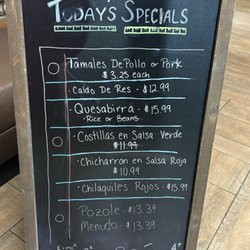 TODAY'S SPECIALS
TAMALES DE POLLO or PORK
$3.25 each
• CALDO DE RES - $12.99
• QUESABIRRA - $15.99
• RICE or BEANS
• COSTILLAS EN SALSA VERDE
$11.99
• CHICHARRON EN SALSA ROJA
$10.99
• CHILAQUILES ROJOS - $15.99
• POZOLE - $13.39
MENUDO - $13.39